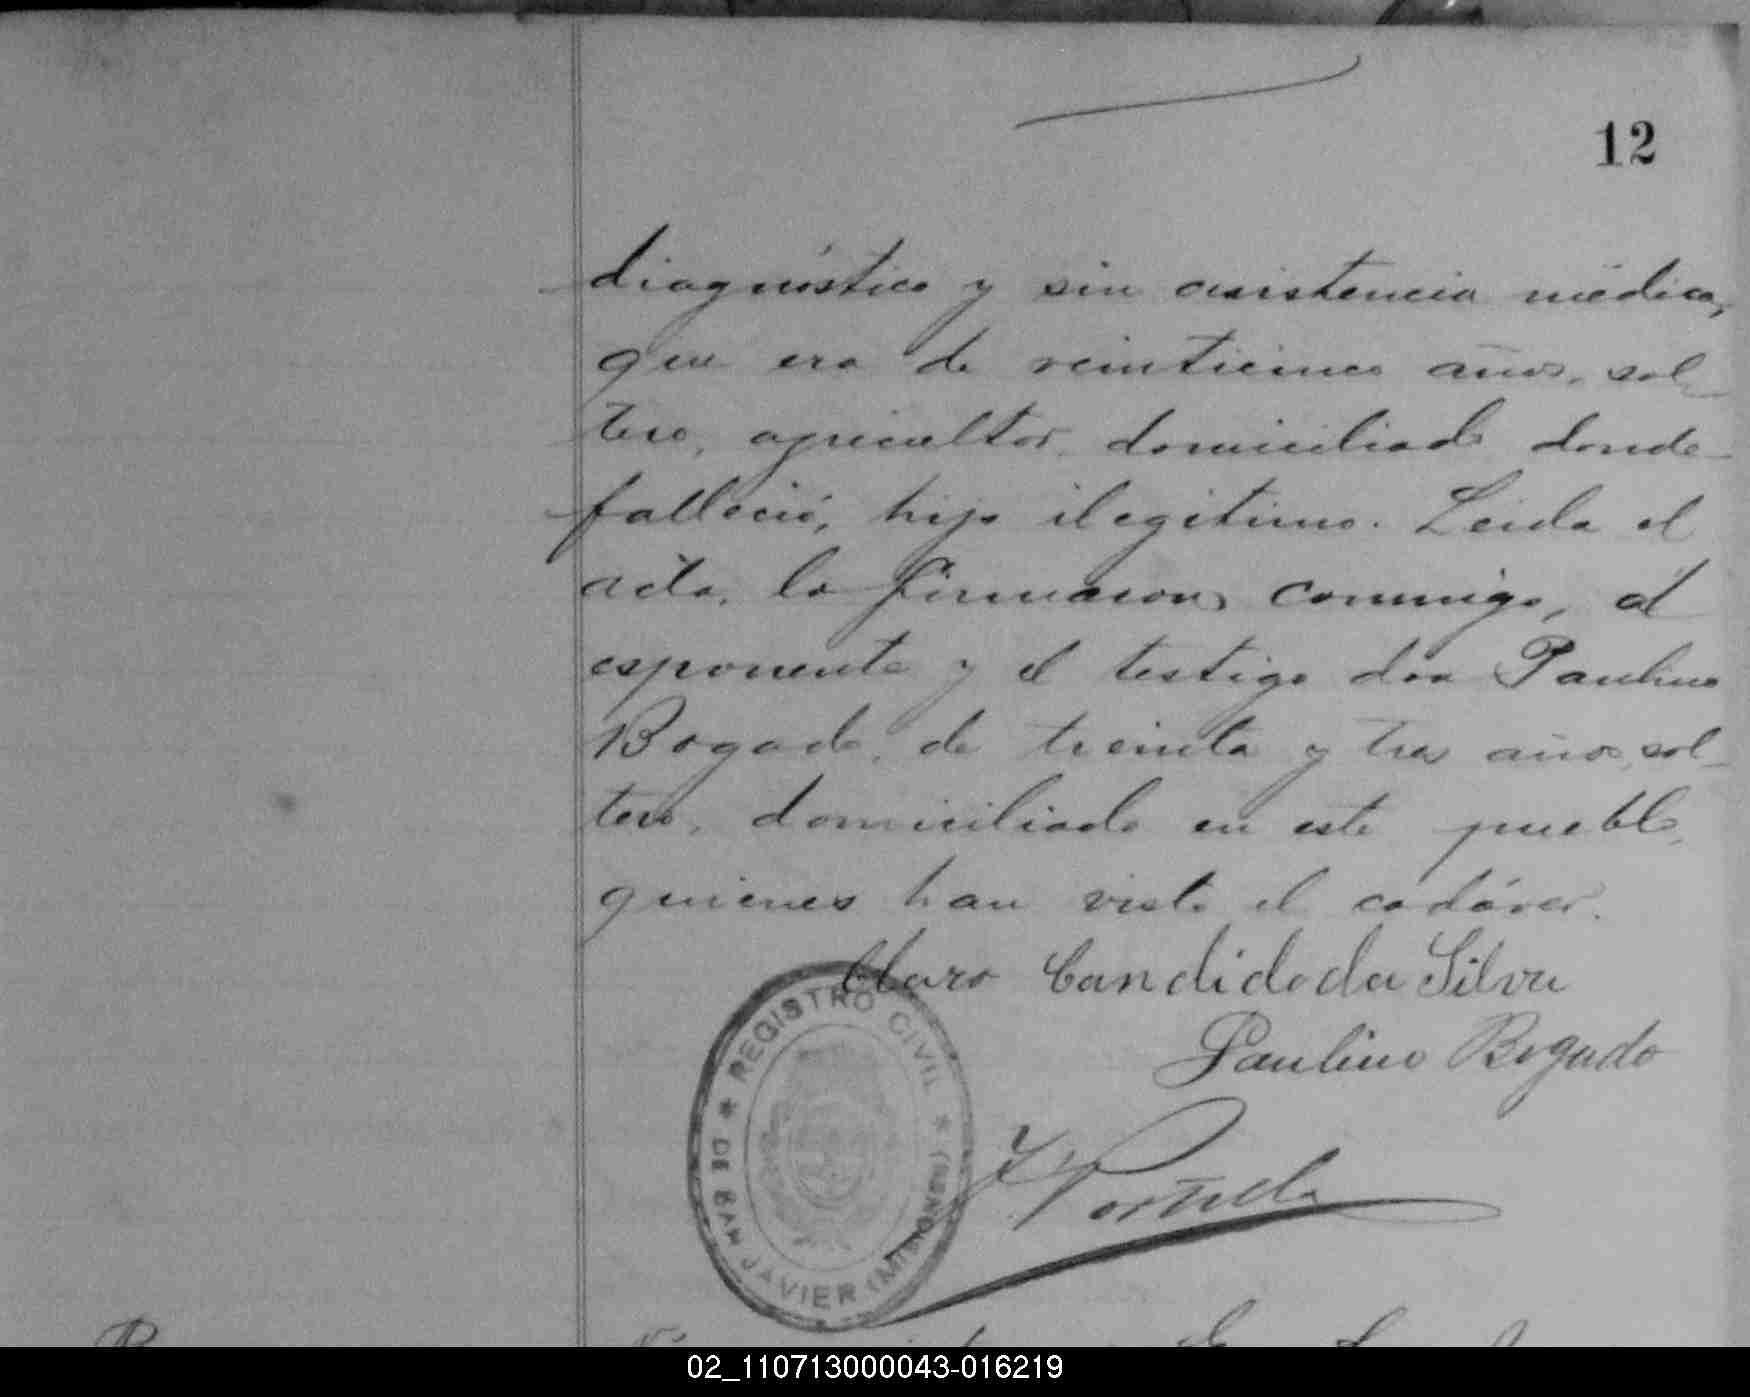 12
diagnóstico y sin asistencia médica,
que era de veinticinco años, sol
tero, agricultor, domiciliado donde
falleció, hijo ilegítimo. Leida el
acta, la firmaron conmigo, el
esponente y el testigo don Paulino
Bogado, de treinta y tres años, sol
tero, domiciliado en este pueblo,
quienes han visto el cadáver.
Claro Candido da Silva
Paulino Bogado
REGISTRO CIVIL
DE SAN JAVIER (MISIONES)
02_110713000043-016219